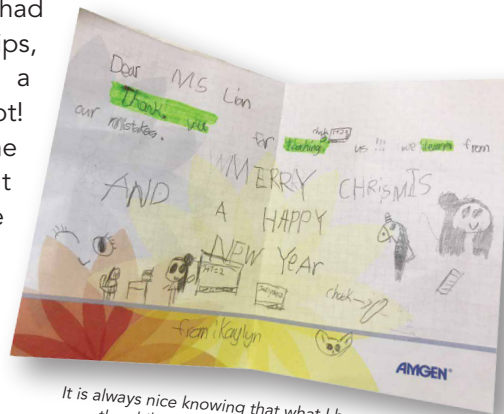 had
ips,
a
ot!
ne
t
e
Dear MS Lian
Thank you for teaching us!!! we learn from
our mistakes.
MERRY CHRISMIS
AND A HAPPY
NEW YEAR
1+1=2
chalk→
from: Kaylyn
AMGEN®
It is always nice knowing that what I